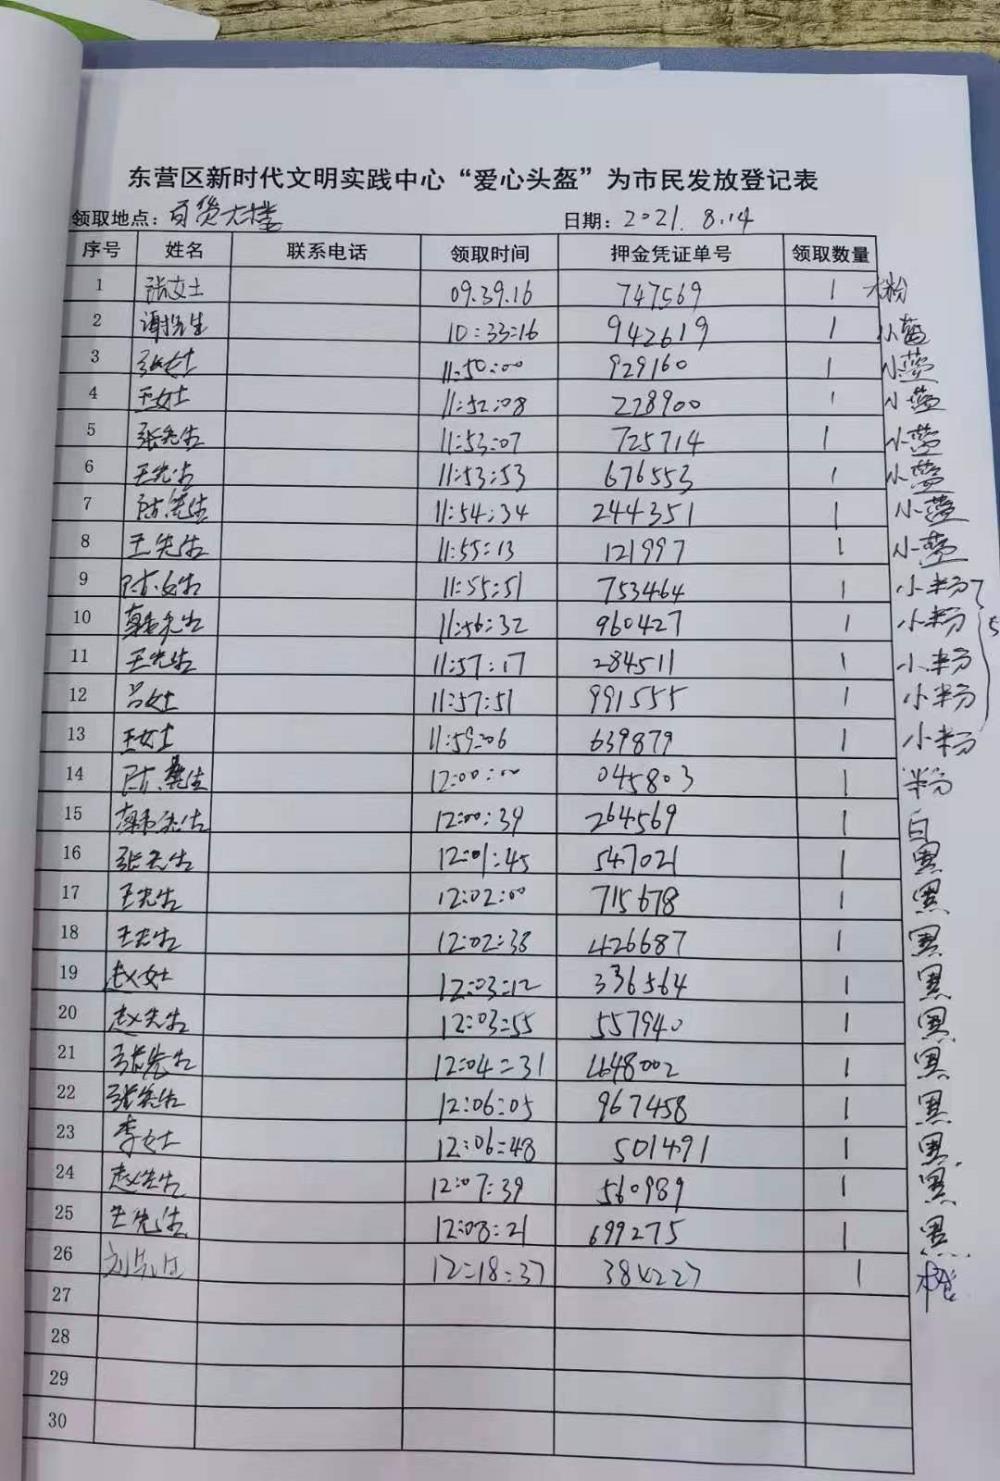 东营区新时代文明实践中心“爱心头盔”为市民发放登记表
领取地点：百货大楼 日期：2021.8.14
序号 姓名 联系电话 领取时间 押金凭证单号 领取数量
1 张女士 09.39.16 747569 1 大粉
2 谢先生 10:33:16 942619 1 小蓝
3 张女士 11:50:00 929160 1 小蓝
4 王女士 11:52:08 228900 1 小蓝
5 张先生 11:53:07 725714 1 小蓝
6 王先生 11:53:53 676553 1 小蓝
7 陈先生 11:54:34 244351 1 小蓝
8 王先生 11:55:13 121997 1 小蓝
9 陈女士 11:55:51 753464 1 小粉
10 韩先生 11:56:32 960427 1 小粉 5
11 王先生 11:57:17 284511 1 小粉
12 吕女士 11:57:51 991555 1 小粉
13 王女士 11:59:06 639879 1 小粉
14 陈先生 12:00:00 045803 1 粉
15 韩先生 12:00:39 264569 1 白
16 张先生 12:01:45 547021 1 黑
17 王先生 12:02:00 715678 1 黑
18 王先生 12:02:38 426687 1 黑
19 赵女士 12:03:12 336564 1 黑
20 赵先生 12:03:55 557940 1 黑
21 张先生 12:04:31 648002 1 黑
22 张先生 12:06:05 967458 1 黑
23 李女士 12:06:48 501491 1 黑
24 赵先生 12:07:39 560989 1 黑
25 王先生 12:08:21 699275 1 黑
26 刘先生 12:18:37 384227 1
27
28
29
30